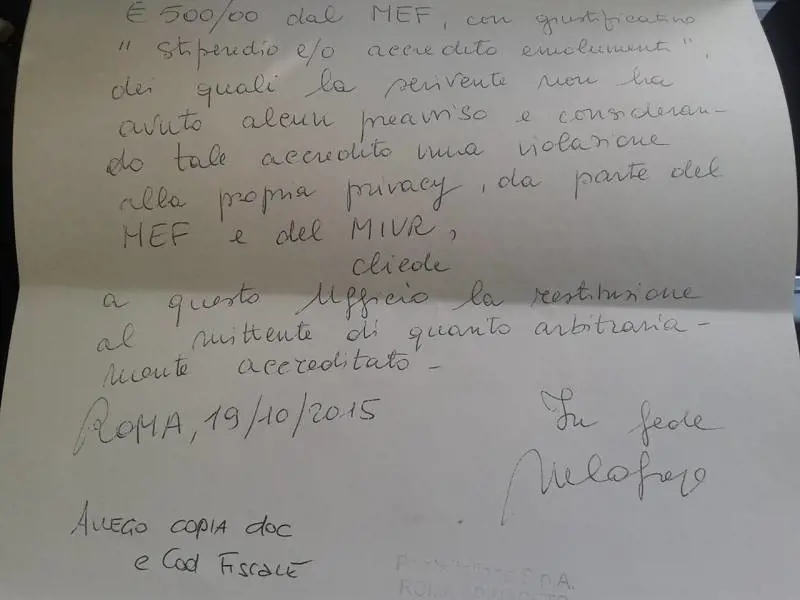 € 500/00 dal MEF, con giustificativo
"stipendio e/o accredito emolumenti",
dei quali la scrivente non ha
avuto alcun preavviso e consideran-
do tale accredito una violazione
alla propria privacy, da parte del
MEF e del MIUR,
chiede
a questo Ufficio la restituzione
al mittente di quanto arbitraria-
mente accreditato-
ROMA, 19/10/2015
In fede
ALLEGO COPIA doc
e Cod FISCALE